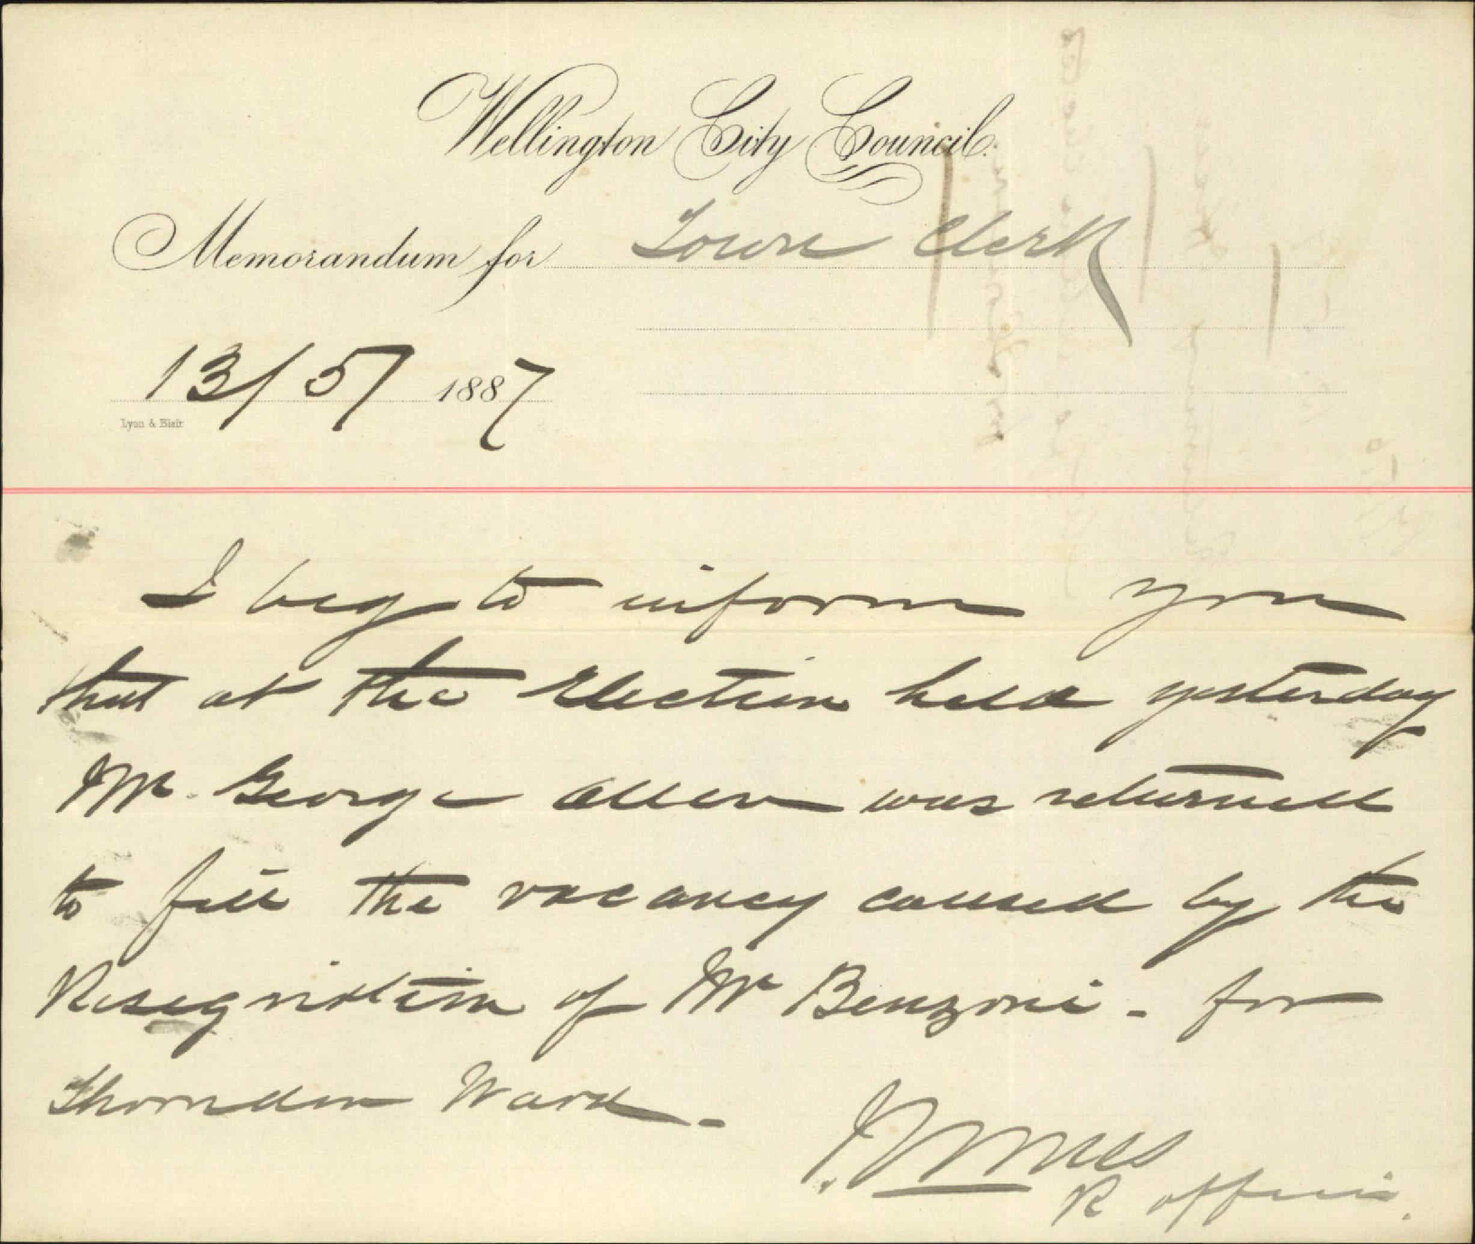 Wellington City Council.
Memorandum for Town Clerk
13/5/1887
Lyon & Blair
I beg to inform you
that at the Election held yesterday
Mr. George Allen was returned
to fill the vacancy caused by the
Resignation of Mr Benzoni - for
Thorndon Ward -
R officer.